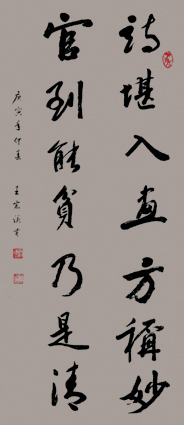 詩堪入畫方稱妙
官到能貧乃是清
庚寅年仲夏